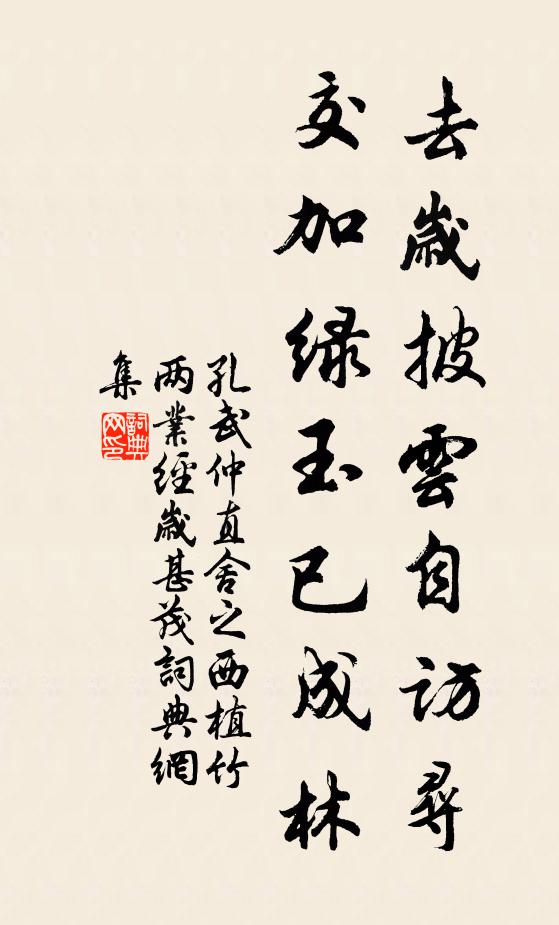 去歲披雲自訪尋
交加緑玉已成林
孔武仲直舍之西植竹
两業經歲甚茂詞典網
集
詞典
网印